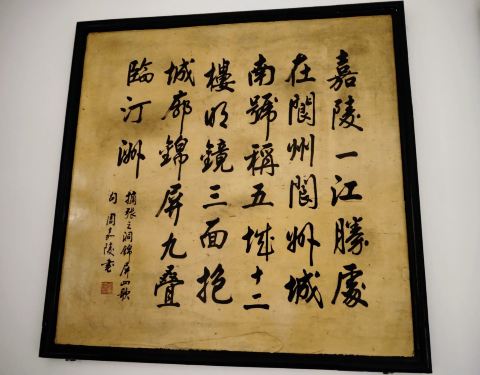 嘉陵一江勝處
在閬州閬州城
南號稱五城十二
樓明鏡三面抱
城廓錦屏九疊
臨汀洲
摘張之洞錦屏山歌
句周嘉陵書